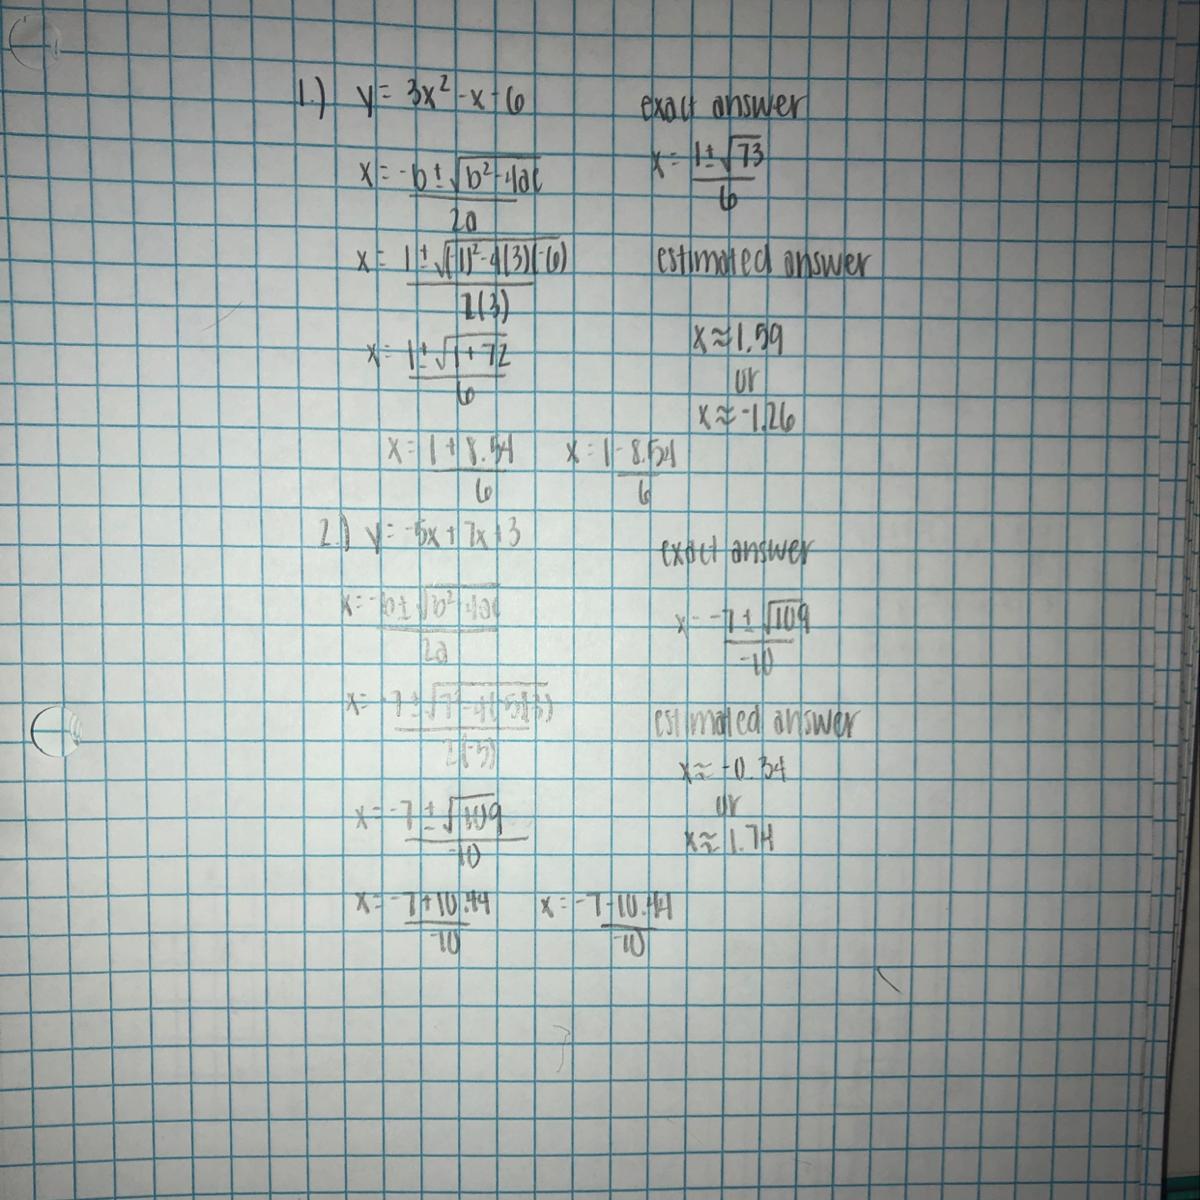 1.) y = 3x² - x - 6
x = -b ± √b² - 4ac
2a
x = 1 ± √(-1)² - 4(3)(-6)
2(3)
x = 1 ± √1 + 72
6
x = 1 + 8.54 x = 1 - 8.54
6 6
exact answer
x = 1 ± √73
6
estimated answer
x ≈ 1.59
or
x ≈ -1.26
2.) y = -5x + 7x + 3
x = -b ± √b² - 4ac
2a
x = -7 ± √7² - 4(-5)(3)
2(-5)
x = -7 ± √109
-10
x = -7 + 10.44 x = -7 - 10.44
-10 -10
exact answer
x = -7 ± √109
-10
estimated answer
x ≈ -0.34
or
x ≈ 1.74